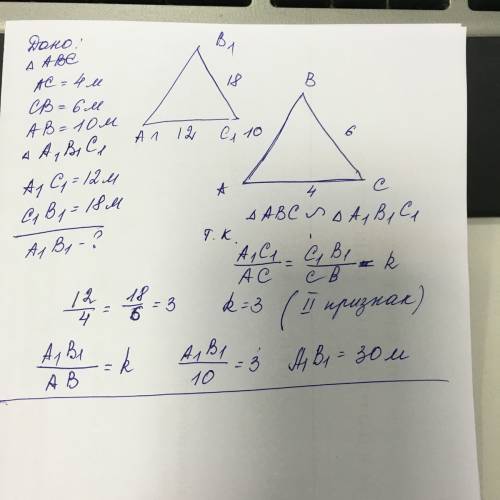 Дано:
△ ABC
AC = 4 м
CB = 6 м
AB = 10 м
△ A₁B₁C₁
A₁C₁ = 12 м
C₁B₁ = 18 м
A₁B₁ - ?
B₁
18
A₁ 12 C₁ 10
B
6
A 4 C
△ABC ∽ △A₁B₁C₁
т.к.
A₁C₁/AC = C₁B₁/CB = k
12/4 = 18/6 = 3 k = 3 (II признак)
A₁B₁/AB = k A₁B₁/10 = 3 A₁B₁ = 30 м